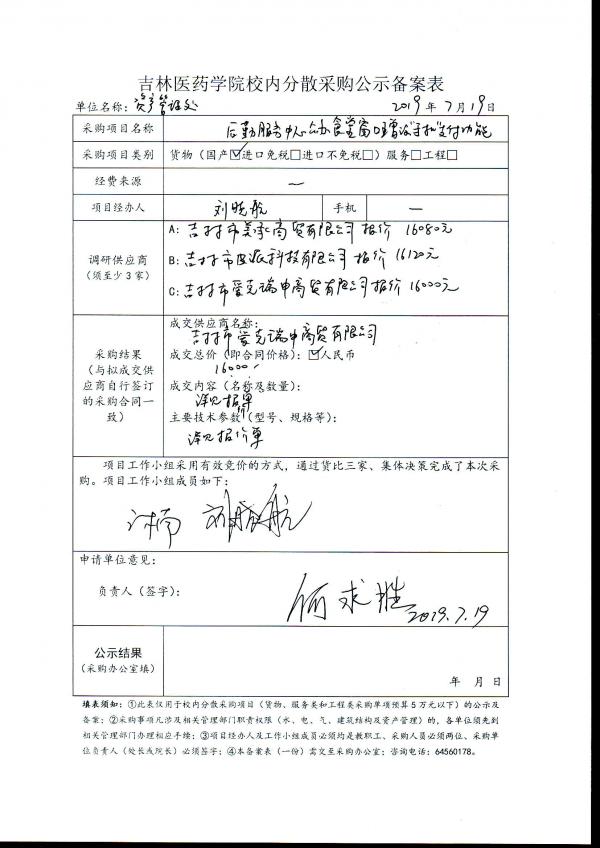 吉林医药学院校内分散采购公示备案表
单位名称：资产管理处 2019年7月19日
采购项目名称 后勤服务中心公办食堂窗口增设手机支付功能
采购项目类别 货物（国产☑进口免税□进口不免税□）服务□工程□
经费来源 —
项目经办人 刘晓航 手机 —
调研供应商
（须至少3家）
A：吉林市昊承商贸有限公司 报价 16080元
B：吉林市 科技有限公司 报价 16120元
C：吉林市爱克瑞申商贸有限公司 报价 16000元
采购结果
（与拟成交供
应商自行签订
的采购合同一
致）
成交供应商名称：
吉林市爱克瑞申商贸有限公司
成交总价（即合同价格）：☑人民币
16000.-
成交内容（名称及数量）：
详见报单
主要技术参数（型号、规格等）：
详见报价单
项目工作小组采用有效竞价的方式，通过货比三家、集体决策完成了本次采
购。项目工作小组成员如下：
许楠 刘晓航
申请单位意见：
负责人（签字）： 何求胜
2019.7.19
公示结果
（采购办公室填）
年 月 日
填表须知：①此表仅用于校内分散采购项目（货物、服务类和工程类采购单项预算5万元以下）的公示及
备案；②采购事项凡涉及相关管理部门职责权限（水、电、气、建筑结构及资产管理）的，各单位须先到
相关管理部门办理相应手续；③项目经办人及工作小组成员必须均是教职工、采购人员必须两位、采购单
位负责人（处长或院长）必须签字；④本备案表（一份）需交至采购办公室；咨询电话：64560178。